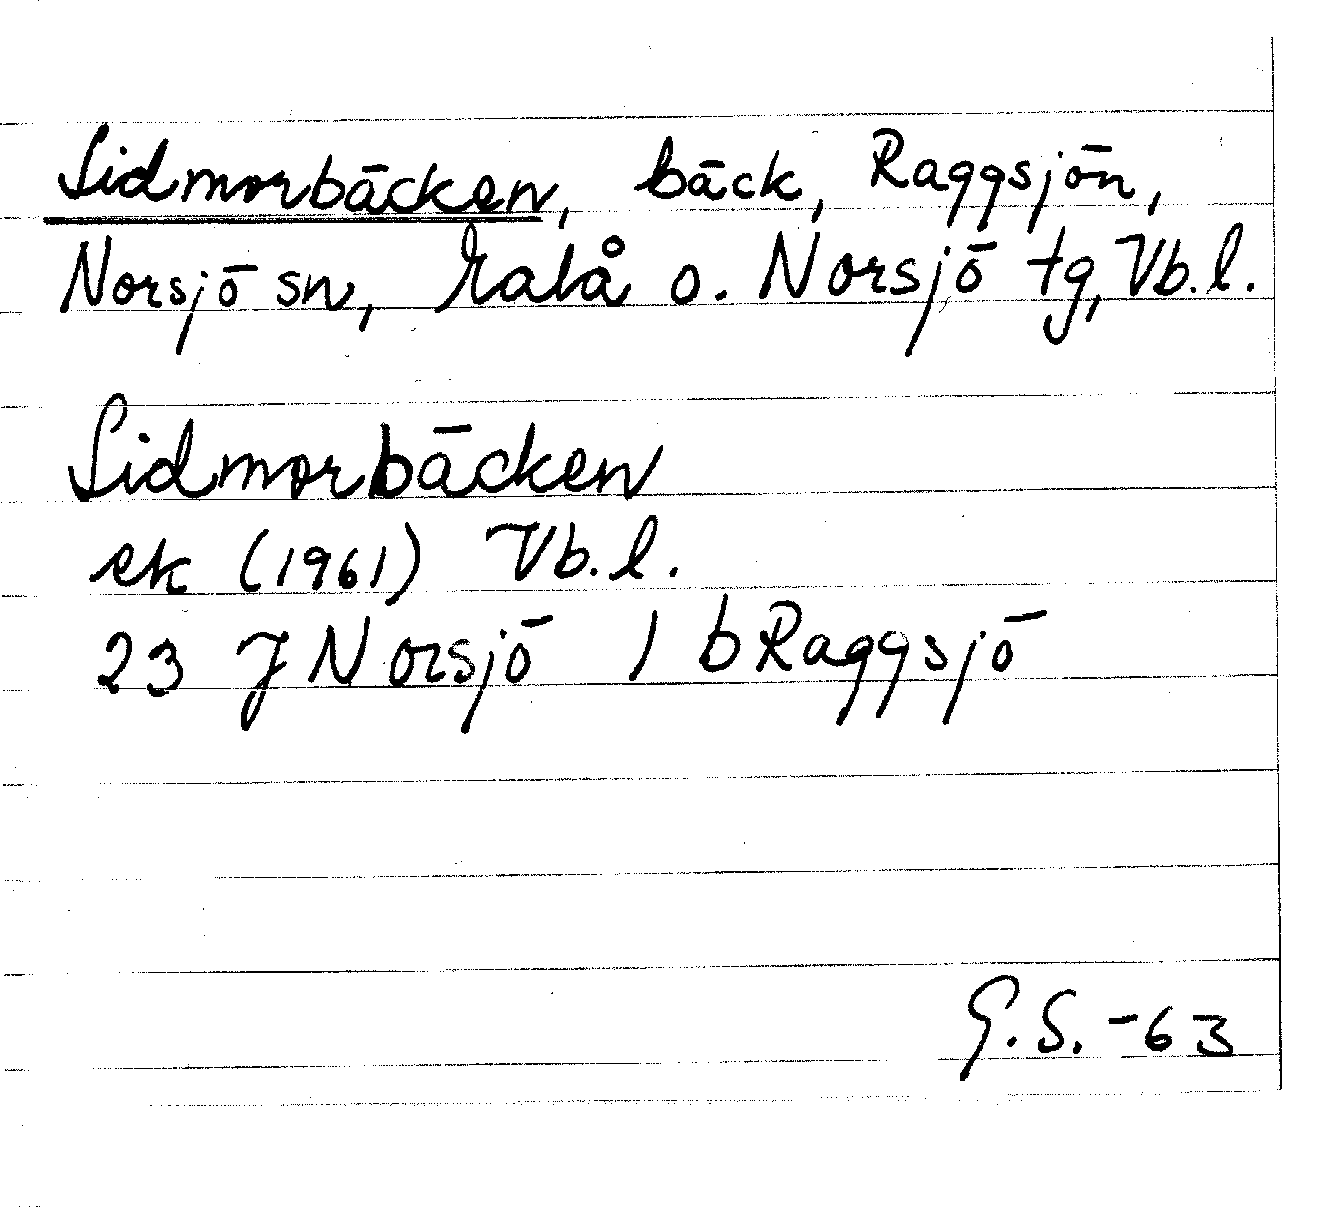 Sidmorbäcken, bäck, Raggsjön,
Norsjö sn, Malå o. Norsjö tg, Vb. l.
Sidmorbäcken
ek (1961) Vb. l.
23 J Norsjö 1 b Raggsjö
G.S. -63